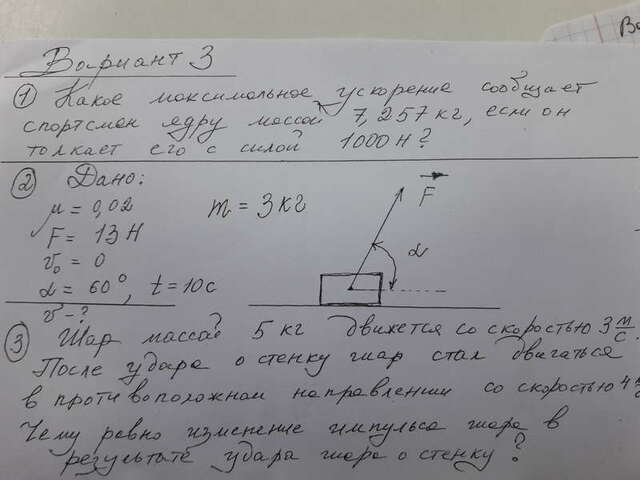 Вариант 3
① Какое максимальное ускорение сообщает
спортсмен ядру массой 7,257 кг, если он
толкает его с силой 1000 Н?
② Дано:
μ = 0,02 m = 3 кг
F = 13 Н
v₀ = 0
α = 60°, t = 10 с
v - ?
F
α
③ Шар массой 5 кг движется со скоростью 3 м/с.
После удара о стенку шар стал двигаться
в противоположном направлении со скоростью 4
Чему равно изменение импульса шара в
результате удара шара о стенку?